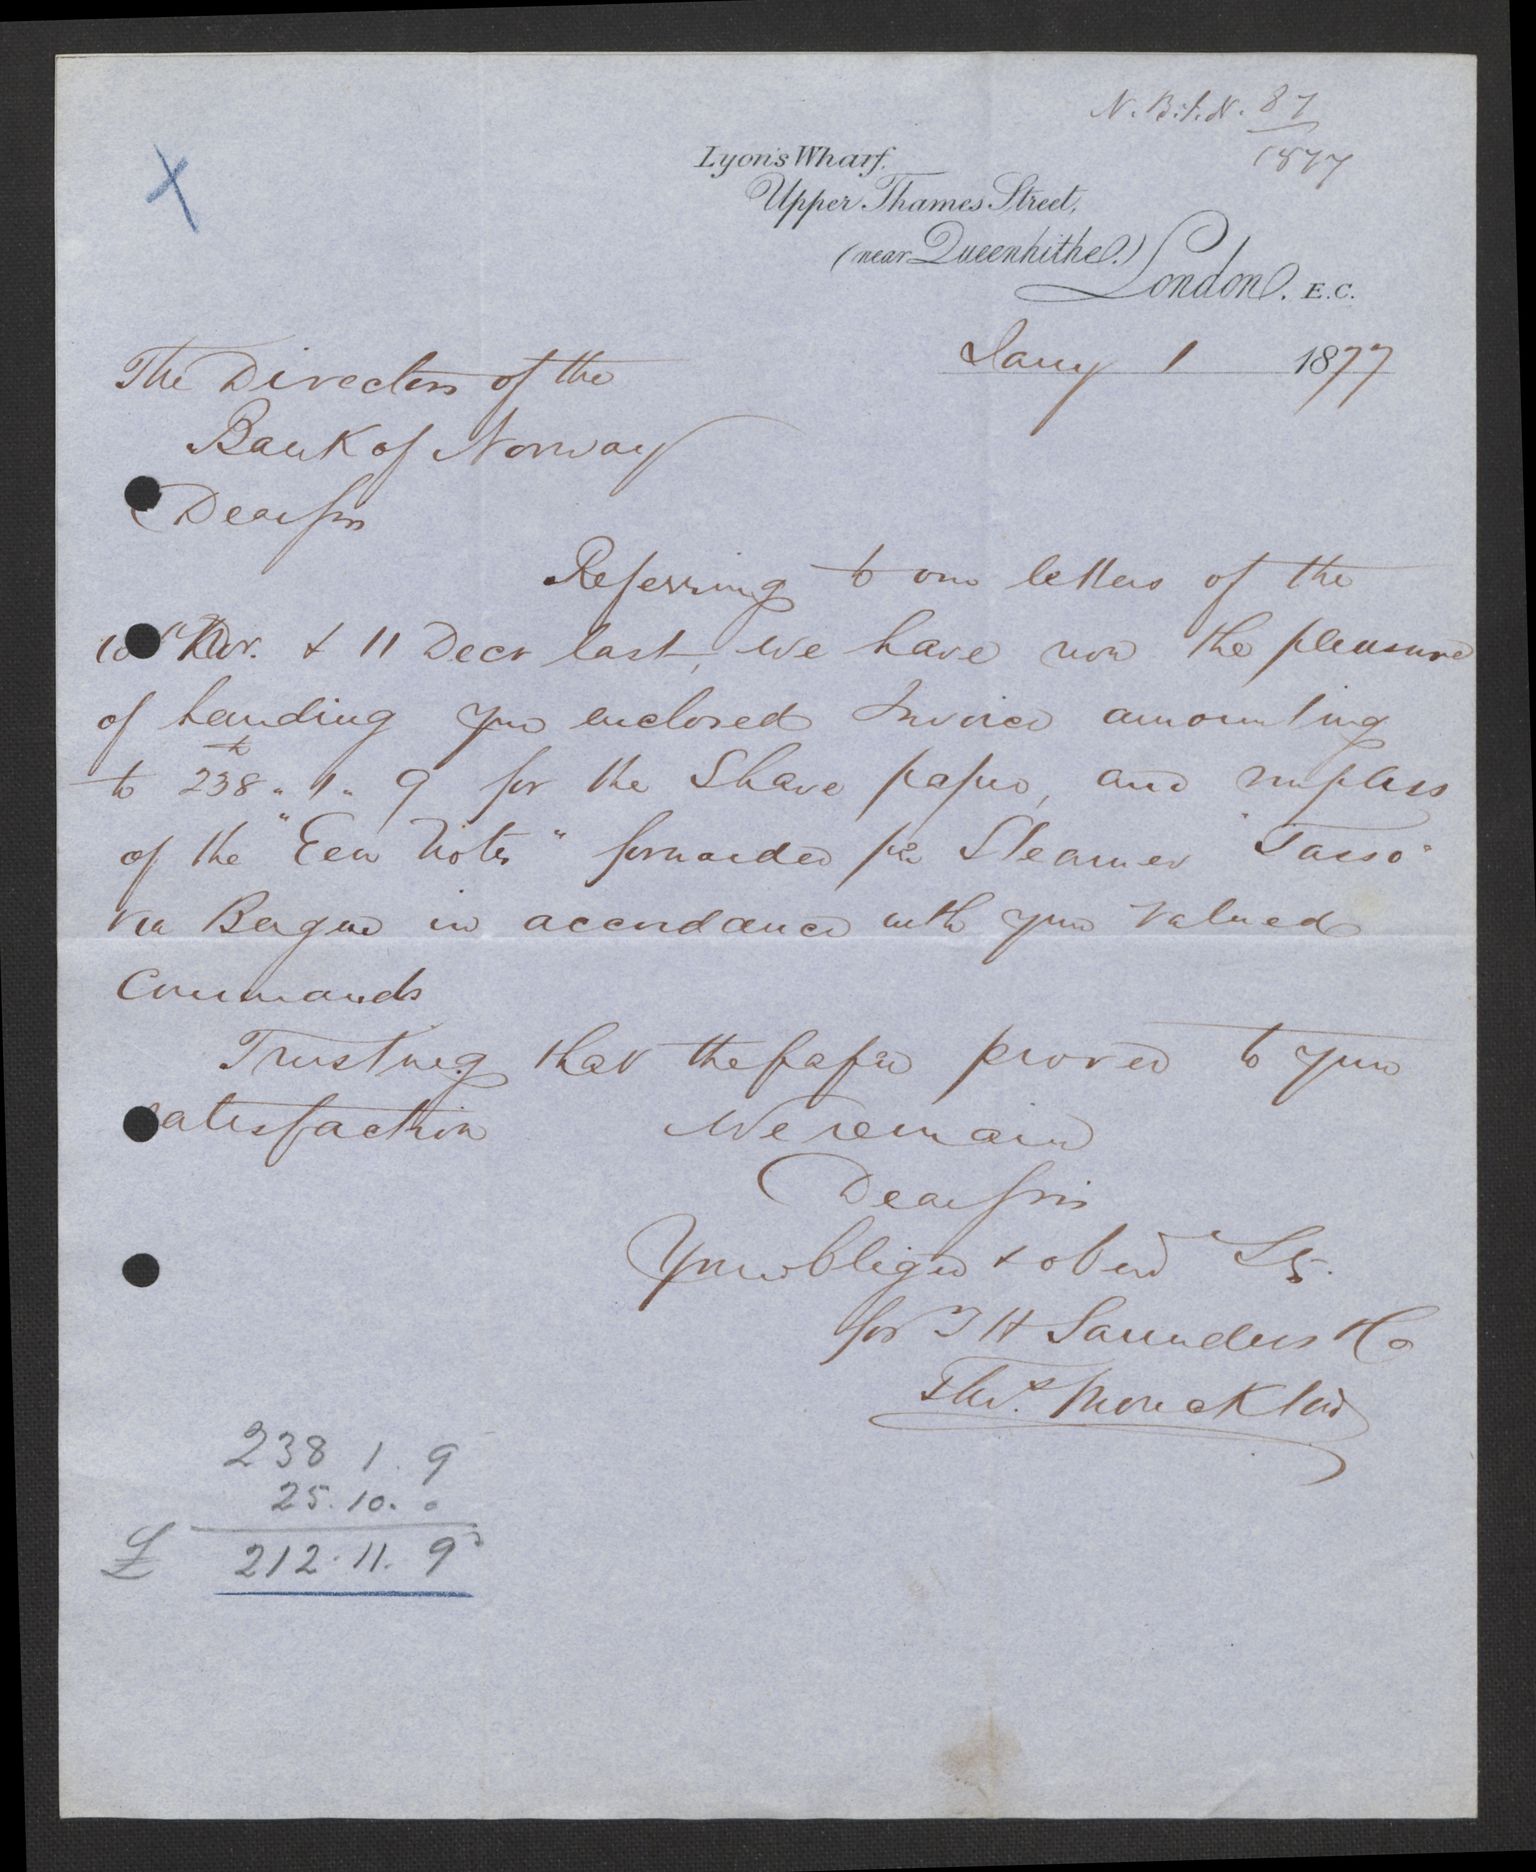 N. B. I. N. 87
1877
Lyon's Wharf,
Upper Thames Street,
(near Queenhithe.)
London. E.C.
Jany 1 1877
The Directors of the
Bank of Norway
Dear Sirs
Referring to our letters of the
10 Nov. & 11 Decr last, we have now the pleasure
of handing you enclosed Invoice amounting
to 238 " 1 " 9 for the Share paper, and surplus
of the "Een Notes" forwarded per Steamer "Tasso"
via Bergen in accordance with your valued
Commands
Trusting that the paper proves to your
satisfaction We remain
Dear Sirs
Your obliged & obed Sts.
for T H Saunders & Co
Thos. Monckton
238 1. 9
25. 10. 0
£ 212. 11. 9